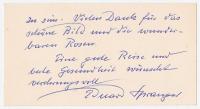 Vielen Dank für das
schöne Bild und die wunder-
baren Rosen.
Eine gute Reise und
gute Gesundheit wünscht
verehrungsvoll
Eduard Spranger